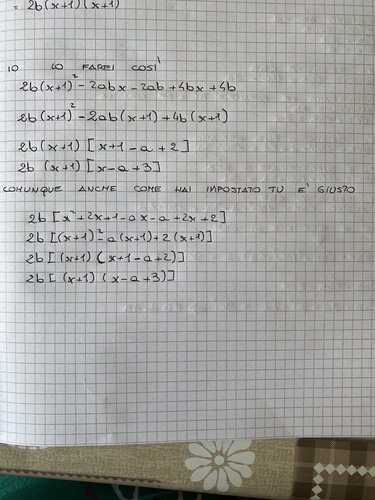 = 2b(x+1)(x+1)
IO LO FAREI COSÌ
2b(x+1)² - 2abx - 2ab + 4bx + 4b
2b(x+1)² - 2ab(x+1) + 4b(x+1)
2b(x+1) [x+1 - a + 2]
2b (x+1) [x - a + 3]
COMUNQUE ANCHE COME HAI IMPOSTATO TU E' GIUSTO
2b [x² + 2x + 1 - ax - a + 2x + 2]
2b [(x+1)² - a(x+1) + 2(x+1)]
2b [(x+1) (x+1 - a + 2)]
2b [(x+1) (x - a + 3)]